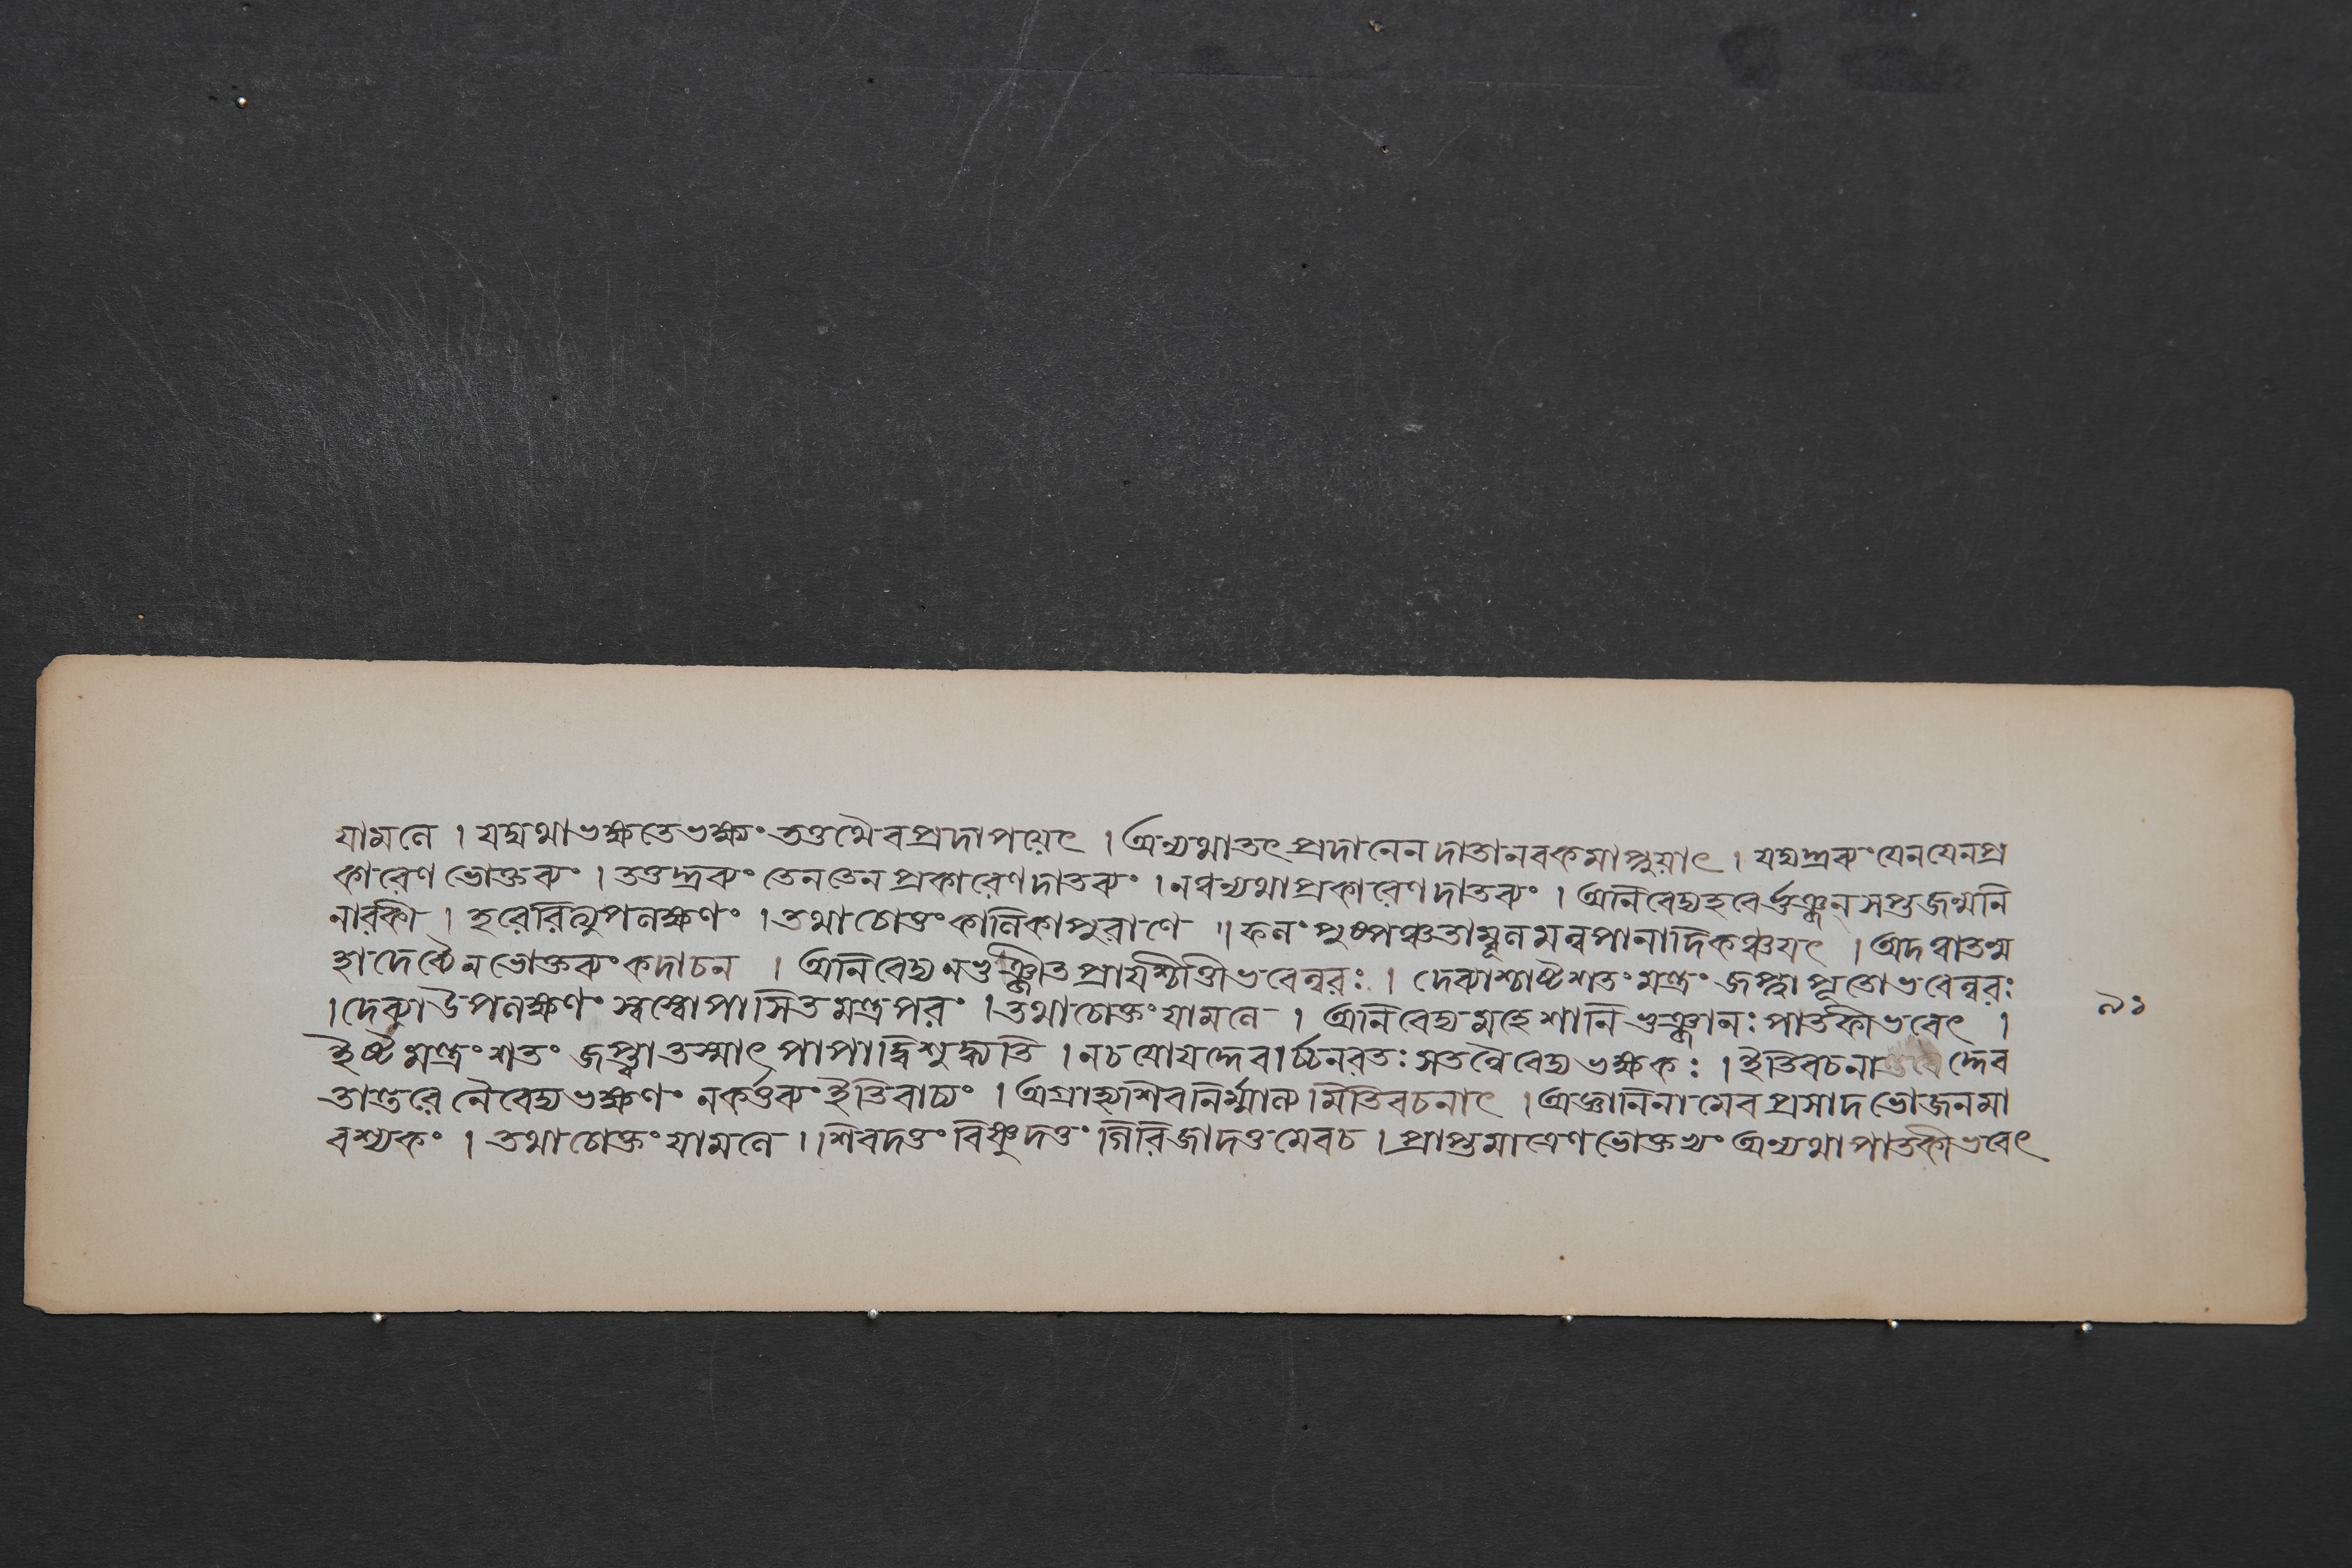 যামলে । যদ্যথাভক্ষ্যতেভক্ষ্যং তত্তথৈবপ্রদাপয়েৎ । অন্যথাতৎপ্রদানেন দাতানরকমাপ্নুয়াৎ । যদ্যদ্দ্রব্যংযেনযেনপ্র
কারেণ ভোক্তব্যং । তত্তদ্দ্রব্যং তেনতেন প্রকারেণদাতব্যং । নত্বন্যথাপ্রকারেণদাতব্যং । অনিবেদ্যহরের্ভুঞ্জন্ সপ্তজন্মনি
নারকী । হরেরিত্যুপলক্ষণং । তথাচোক্তং কালিকাপুরাণে ॥ ফলং পুষ্পঞ্চতাম্বূলমন্নপানাদিকঞ্চযৎ । অদত্বাতন্ম
হাদেব্যৈনভোক্তব্যংকদাচন । অনিবেদ্যনভুঞ্জীতপ্রায়শ্চিত্তীভবেন্নরঃ । দেব্যাশ্চাষ্টশতংমন্ত্রং জপ্ত্বাপূতোভবেন্নরঃ
। দেব্যাউপলক্ষণং স্বস্বোপাসিতমন্ত্রপরং । তথাচোক্তংযামলে । অনিবেদ্যমহেশানিভুঞ্জানঃপাতকীভবেৎ ।
ইষ্টমন্ত্রংশতং জপ্ত্বাতস্মাৎ পাপাদ্বিশুদ্ধ্যতি । নচযোযদ্দেবার্চ্চনরতঃসতন্নৈবেদ্যভক্ষকঃ । ইতিবচনাদ্দেব
তান্তরে নৈবেদ্যভক্ষণং নকর্ত্তব্যংইতিবাচ্যং । অগ্রাহ্যশিবনির্ম্মাল্যমিতিবচনাৎ । অজ্ঞানিনামেবপ্রসাদভোজনমা
বশ্যকং । তথাচোক্তংযামলে । । শিবদত্তং বিষ্ণুদত্তং গিরিজাদত্তমেবচ । প্রাপ্তমাত্রেণভোক্তব্যং অন্যথাপাতকীভবেৎ
৯১